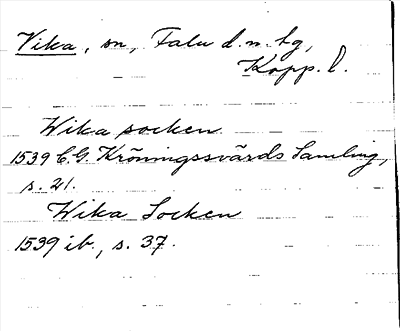 Vika, sn, Falu d.n. hg,
Kopp. l.
Wika socken
1539 C.G. Kröningssvärds Samling,
s. 21.
Wika Socken
1539 ib., s. 37.